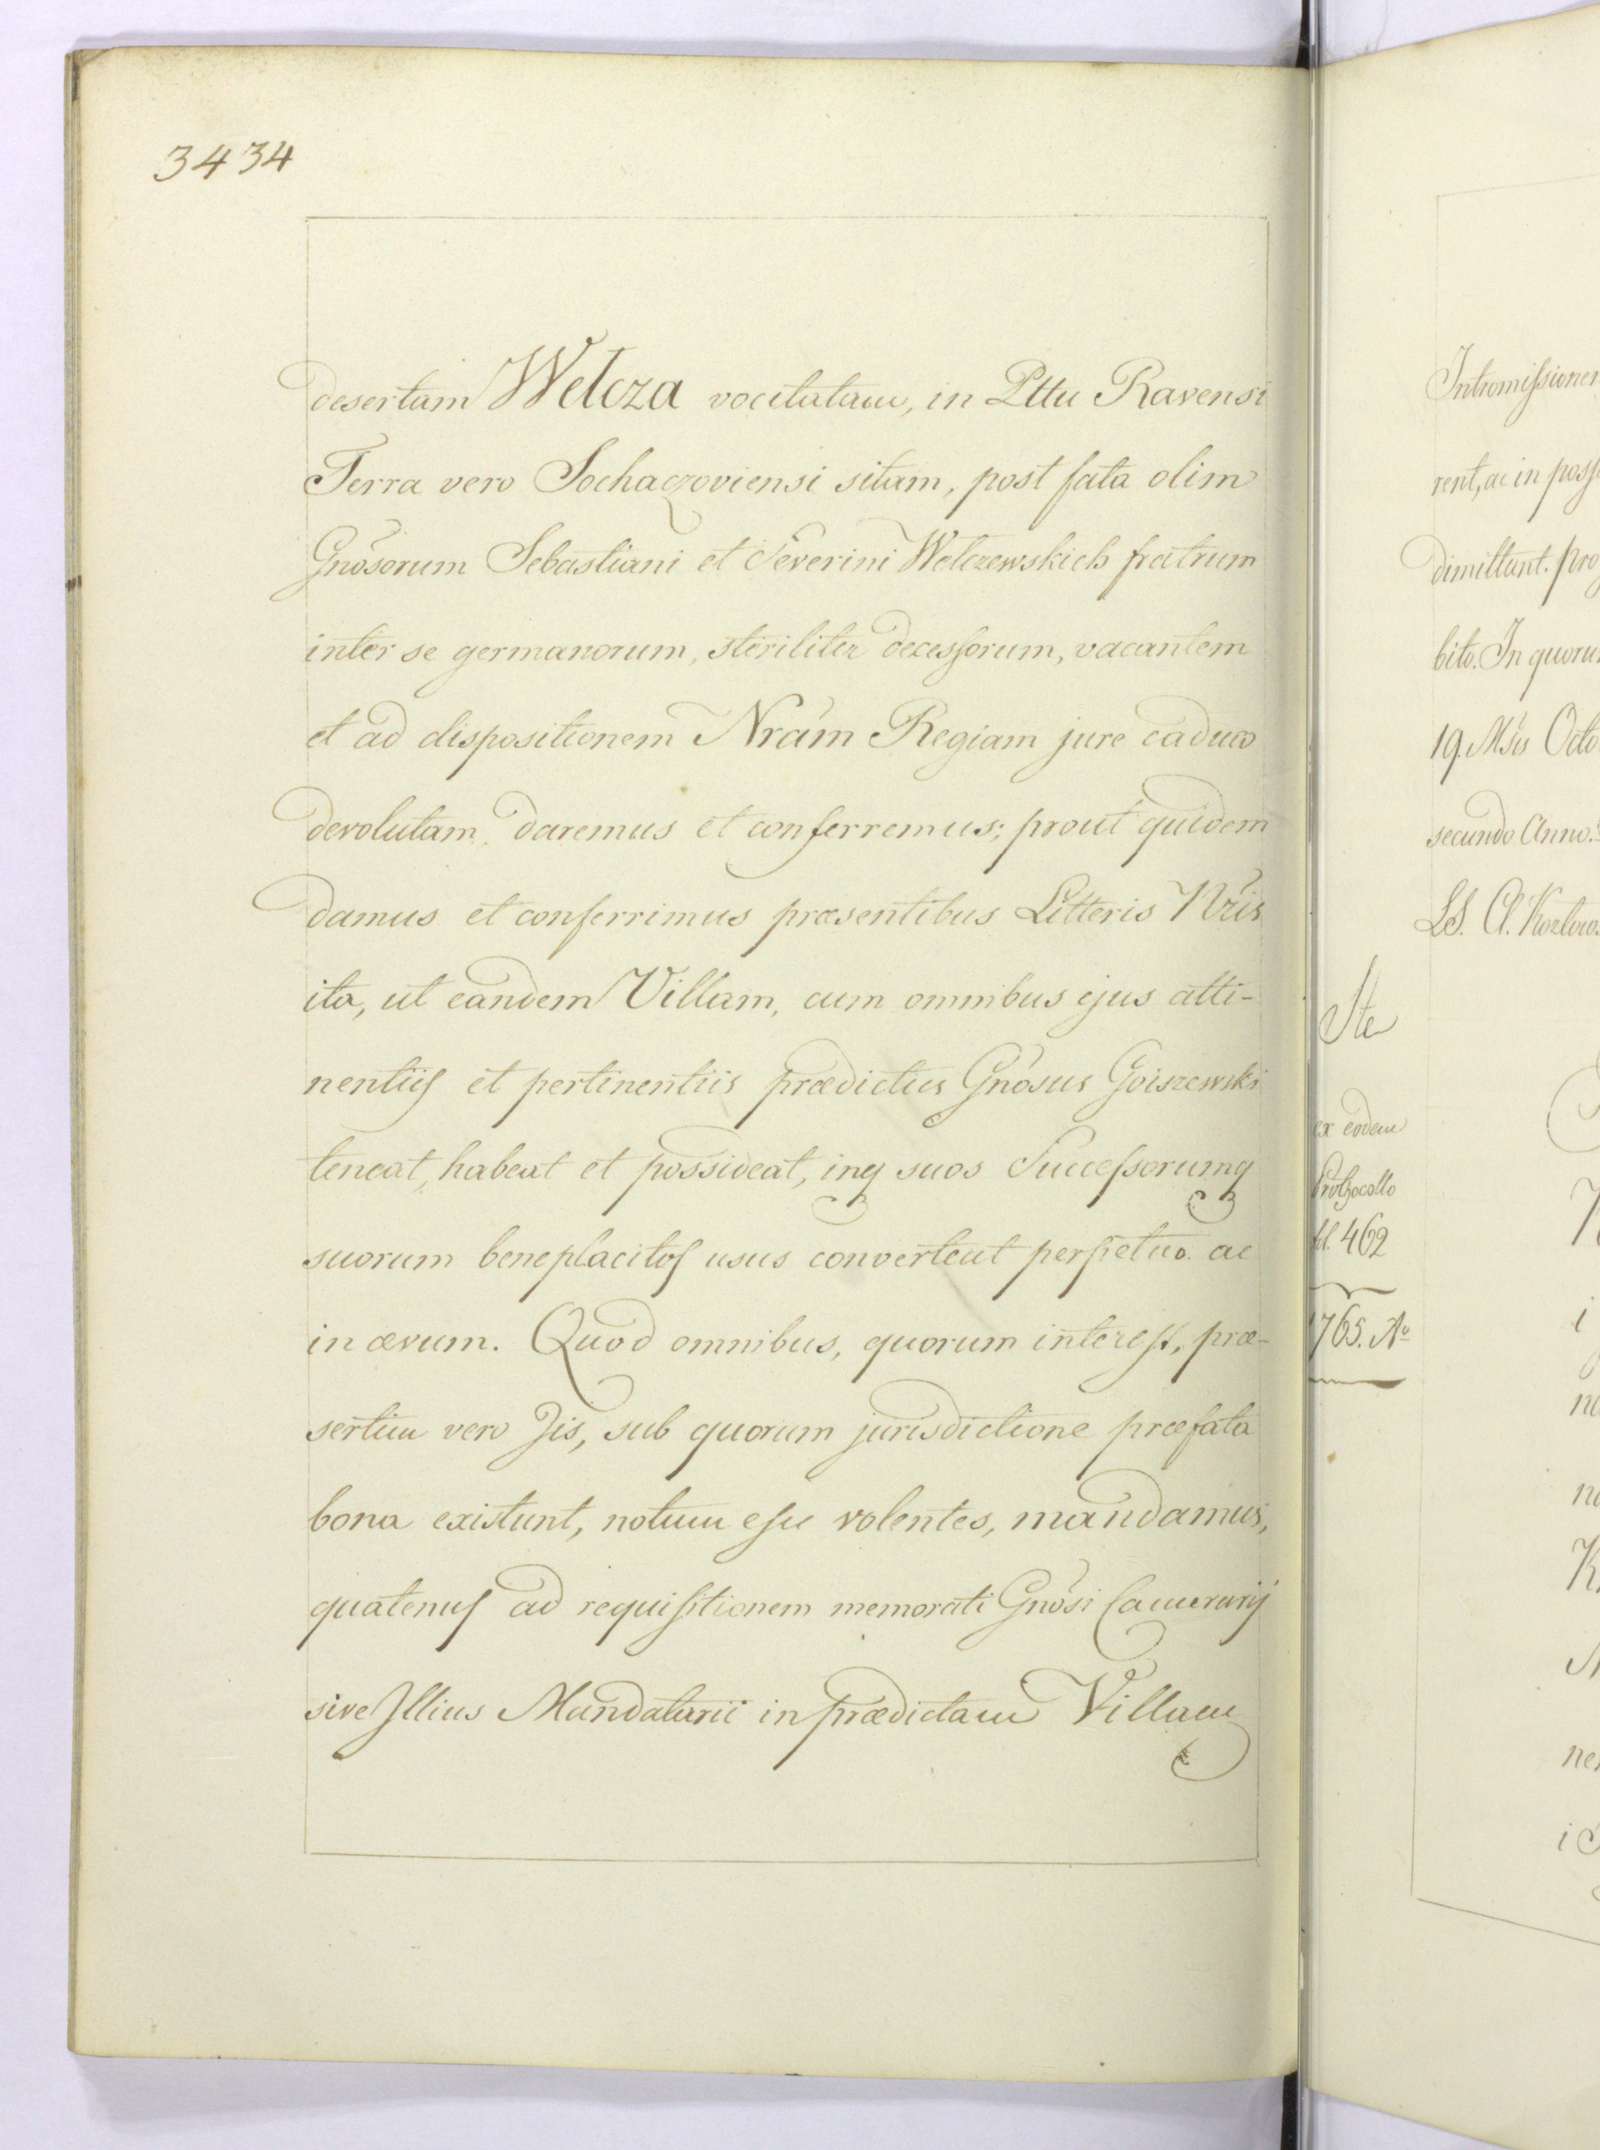 3434
desertam Welcza vocitatam, in Pttu Ravensi
Terra vero Sochaczoviensi sitam, post fata olim
Gnosorum Sebastiani et Severini Welczewskich fratrum
inter se germanorum, steriliter decessorum, vacantem
et ad dispositionem Nram Regiam jure caduco
devolutam, daremus et conferremus; prout quidem
damus et conferrimus præsentibus Litteris Nris
ita, ut eandem Villam, cum omnibus ejus atti-
nentiis et pertinentiis prædictus Gnosus Goiszewski
teneat, habeat et possideat, inq suos Successorumq
suorum beneplacitos usus converteat perpetuo ac
in ævum. Quod omnibus, quorum interest, præ-
sertim vero Iis, sub quorum jurisdictione præfata
bona existunt, notum esse volentes, mandamus,
quatenus ad requisitionem memorati Gnosi Camerarij
sive Illius Mandatarii in prædictam Villam
Intromissionem
rent, ac in poss
dimittant. pro
bito. In quoru
19. Msis Octo
secundo Anno.
LS. Cl. Kozlow
Ste
ex eodem
Prothocollo
fol. 462
1765. Ao